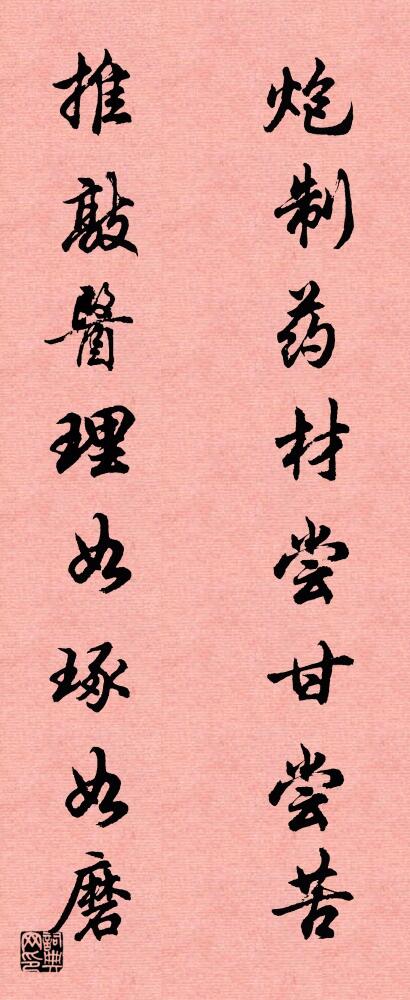 炮制药材尝甘尝苦
推敲醫理如琢如磨
詞典网印